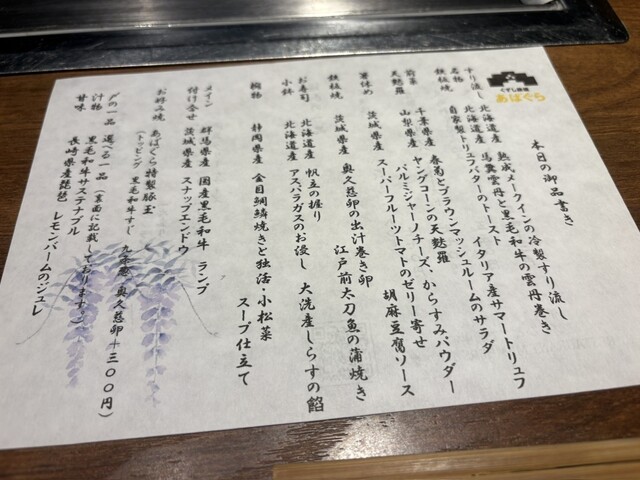 くずし鉄板
あばぐら
本日の御品書き
すり流し 北海道産 熟成メークインの冷製すり流し
名物 北海道産 馬糞雲丹と黒毛和牛の雲丹巻き
鉄板焼 自家製トリュフバターのトースト イタリア産サマートリュフ
前菜 千葉県産 春菊とブラウンマッシュルームのサラダ
天麩羅 山梨県産 ヤングコーンの天麩羅
パルミジャーノチーズ、からすみパウダー
箸休め 茨城県産 スーパーフルーツトマトのゼリー寄せ
胡麻豆腐ソース
鉄板焼 茨城県産 奥久慈卵の出汁巻き卵
江戸前太刀魚の蒲焼き
お寿司 北海道産 帆立の握り
小鉢 北海道産 アスパラガスのお浸し 大洗産しらすの餡
椀物 静岡県産 金目鯛鱗焼きと独活・小松菜
スープ仕立て
メイン 群馬県産 国産黒毛和牛 ランプ
付け合せ 茨城県産 スナップエンドウ
お好み焼 あばぐら特製豚玉
(トッピング 黒毛和牛すじ 九条葱 奥久慈卵+三〇〇円)
〆の一品 選べる一品(裏面に記載しております。)
汁物 黒毛和牛サステナブル
甘味 長崎県産琵琶 レモンバームのジュレ